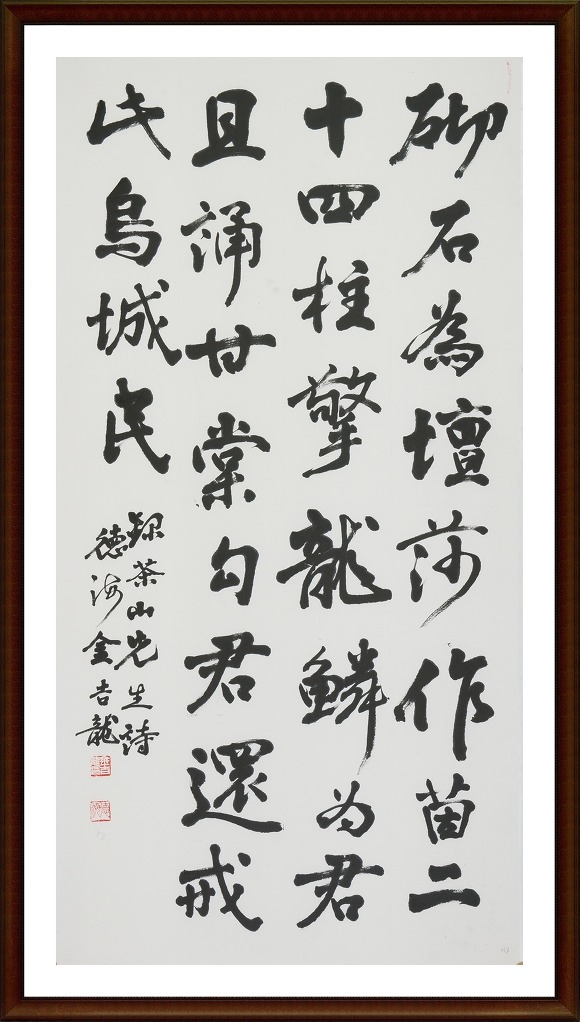 砌石為壇莎作茵二
十四柱擎龍鱗為君
且誦甘棠句君還戒
此烏城民
錄茶山先生詩
德海金吉龍